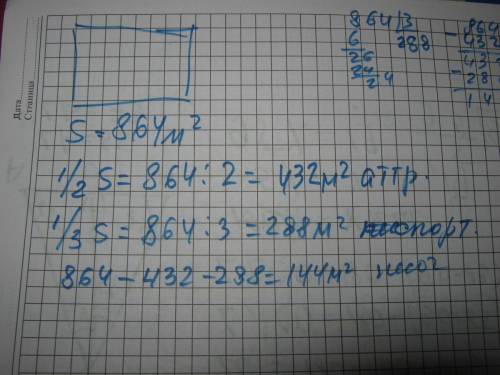 Дата
Страница
864 | 3
6 288
26
24
24
- 864
432
432
- 28
14
S = 864 м²
1/2 S = 864 : 2 = 432 м² аттр.
1/3 S = 864 : 3 = 288 м² спорт.
864 - 432 - 288 = 144 м²